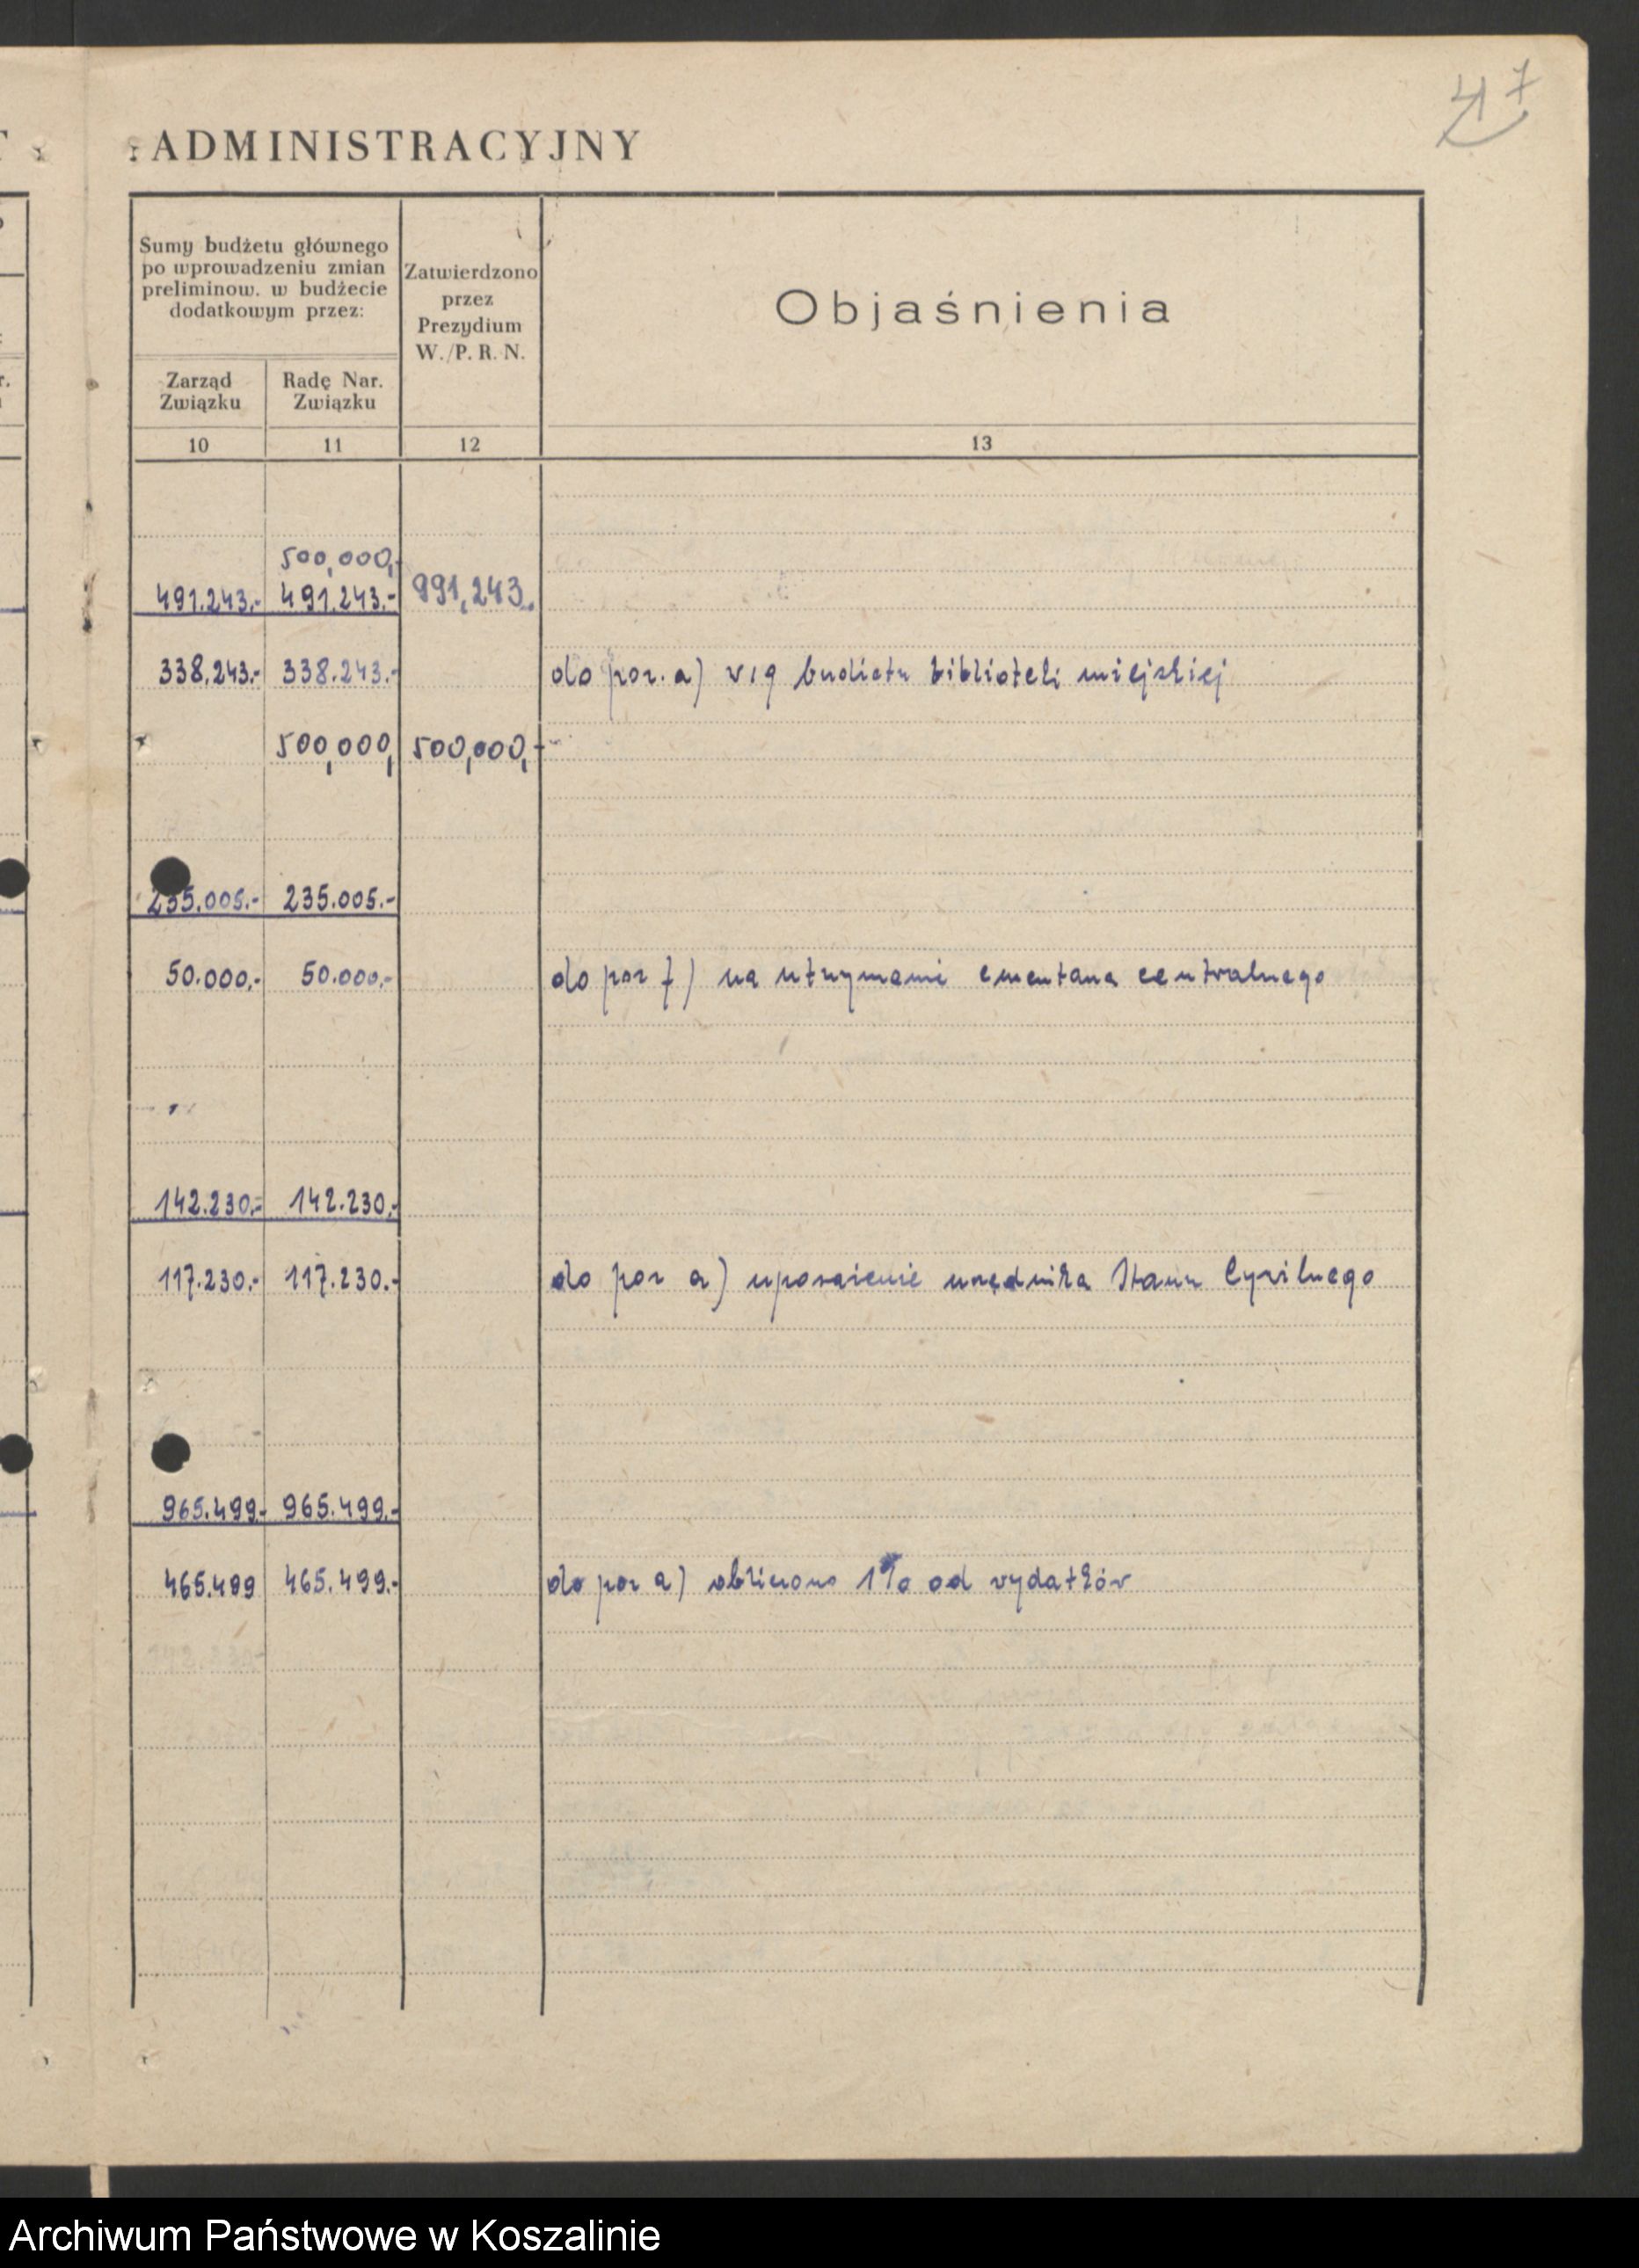 47
ADMINISTRACYJNY
Sumy budżetu głównego
po wprowadzeniu zmian
preliminow. w budżecie
dodatkowym przez:
Zatwierdzono
przez
Prezydium
W./P. R. N.
Objaśnienia
Zarząd
Związku
Radę Nar.
Związku
10 11 12 13
500,000,-
491.243.- 491.243.- 991,243.
338.243.- 338.243.- do poz. a) wg budżetu biblioteki miejskiej
500,000, 500,000,-
235.005.- 235.005.-
50.000.- 50.000.- do poz f) na utrzymanie cmentarza centralnego
142.230.- 142.230.-
117.230.- 117.230.- do poz a) uposażenie urzędnika Stanu Cywilnego
965.499.- 965.499.-
465.499 465.499.- do poz a) obliczono 1% od wydatków
Archiwum Państwowe w Koszalinie